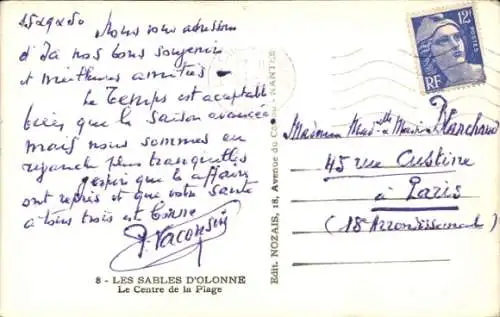 25 9 50
Nous vous adressons
d'ici nos bons souvenirs
et meilleures amitiés -
Le Temps est acceptable
bien que la saison avancée
mais nous sommes en
revanche plus tranquilles
J'espère que les affaires
ont repris et que votre santé
à tous trois est bonne
8 - LES SABLES D'OLONNE
Le Centre de la Plage
Edit. NOZAIS, 18, Avenue du Coteau - NANTES
12F
POSTES
RF
45 rue Custine
à Paris
(18e Arrondissement)